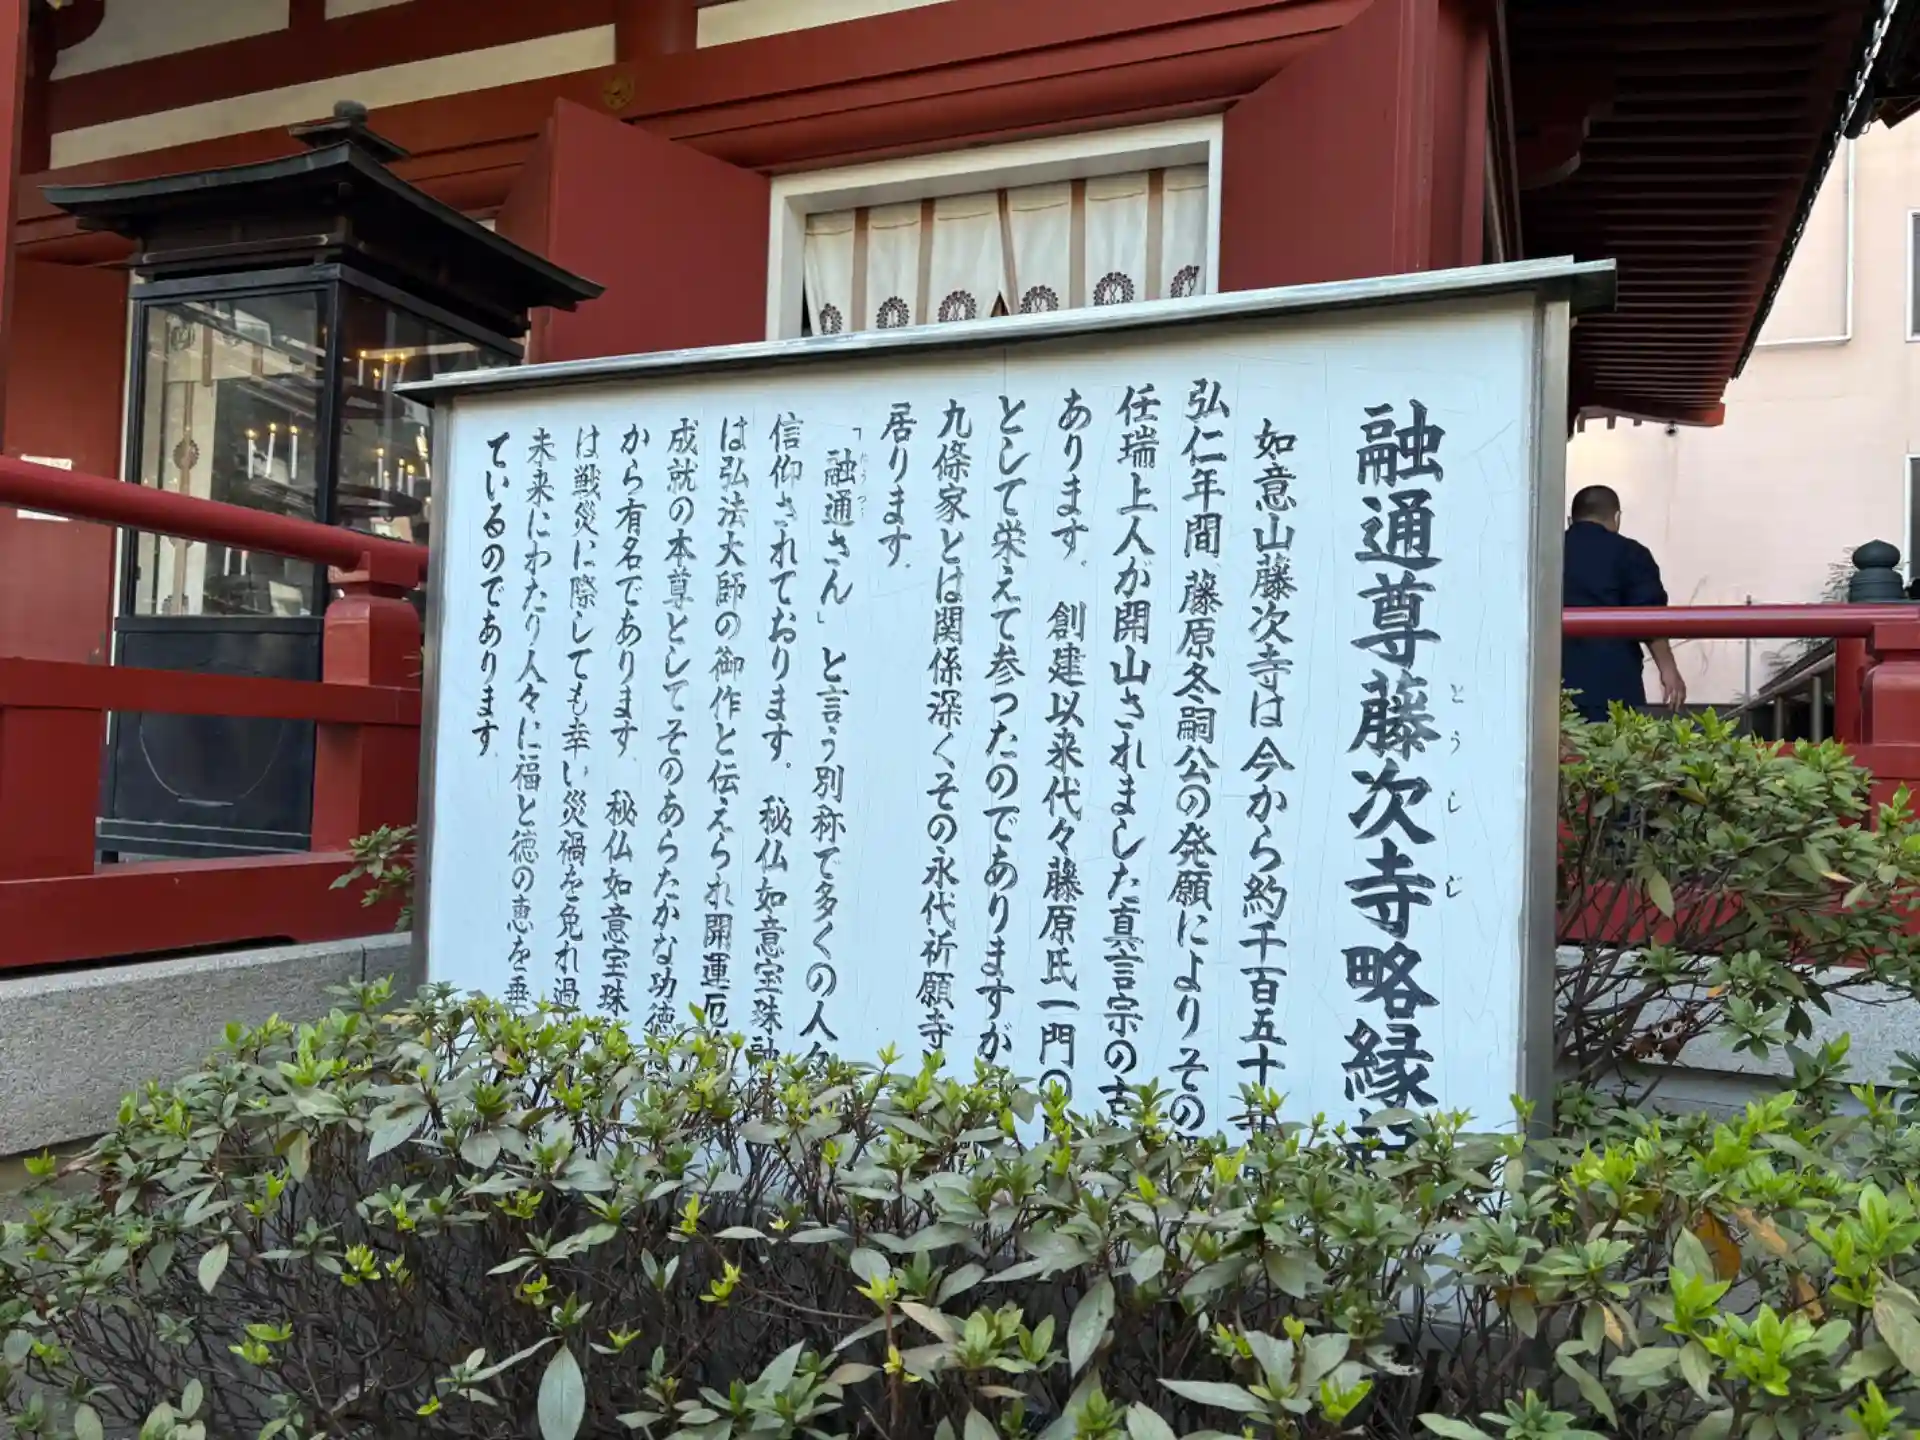 融通尊藤次寺略縁
とうしじ
如意山藤次寺は今から約千百五十
弘仁年間、藤原冬嗣公の発願によりその
任瑞上人が開山されました真言宗の古
あります。 創建以来代々藤原氏一門の
として栄えて参つたのでありますが
九條家とは関係深くその永代祈願寺
居ります。
「融通さん」と言う別称で多くの人々
信仰されております。 秘仏如意宝珠融
は弘法大師の御作と伝えられ開運厄
成就の本尊としてそのあらたかな功徳
から有名であります。 秘仏如意宝珠
は戦災に際しても幸い災禍を免れ過
未来にわたり人々に福と徳の恵を垂
ているのであります。